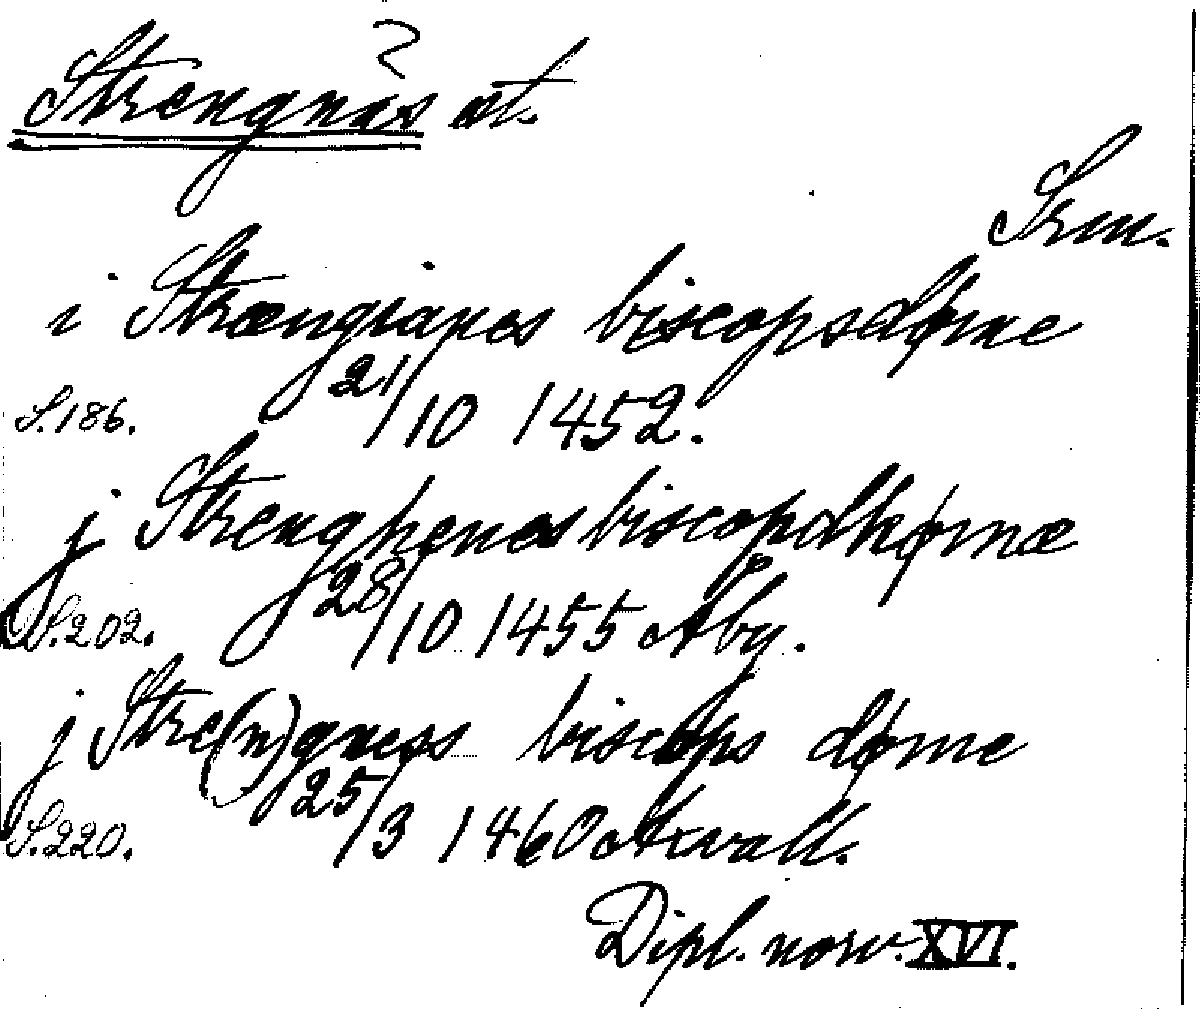 Strengnäs st.
Srm.
i Strængianes biscopsdøme
S. 186. 21/10 1452.
j Strenghenæs biscopdhømæ
S. 202. 28/10 1455 Åby.
j Stre(n)gness biscops døme
S. 220. 25/3 1460 Axvall.
Dipl. norv. XVI.